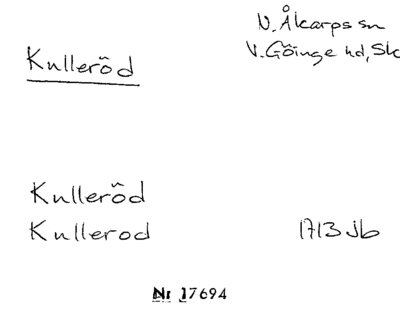 N. Åkarps sn
Kulleröd
V. Göinge hd, Sk
Kulleröd
Kullerod 1713 Jb
Nr 17694